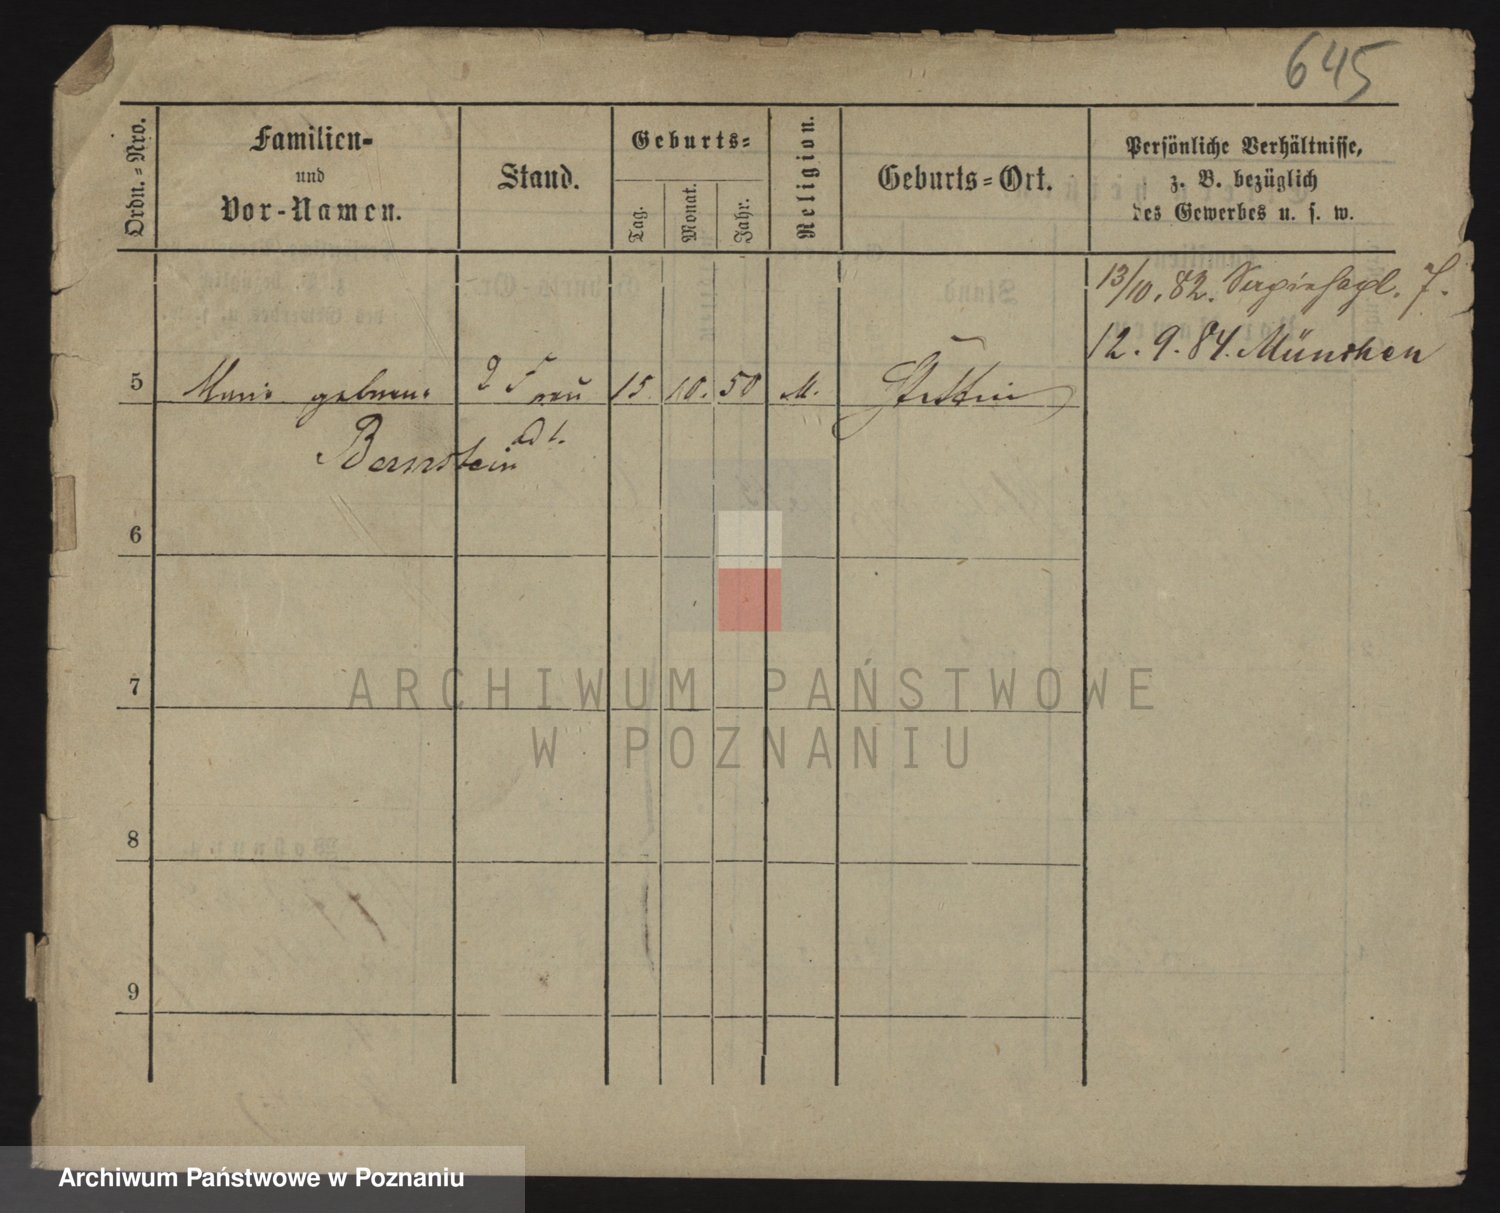 645
Ordn.-Nro.
Familien-
und
Vor-Namen.
Stand.
Geburts-
Tag.
Monat.
Jahr.
Religion.
Geburts-Ort.
Persönliche Verhältnisse,
z. B. bezüglich
des Gewerbes u. s. w.
13/10. 82.
12. 9. 84. München
5 Marie geborne 2 Frau 15. 10. 50 M. Stettin
Bernstein
6
7
8
9
ARCHIWUM PAŃSTWOWE
W POZNANIU
Archiwum Państwowe w Poznaniu